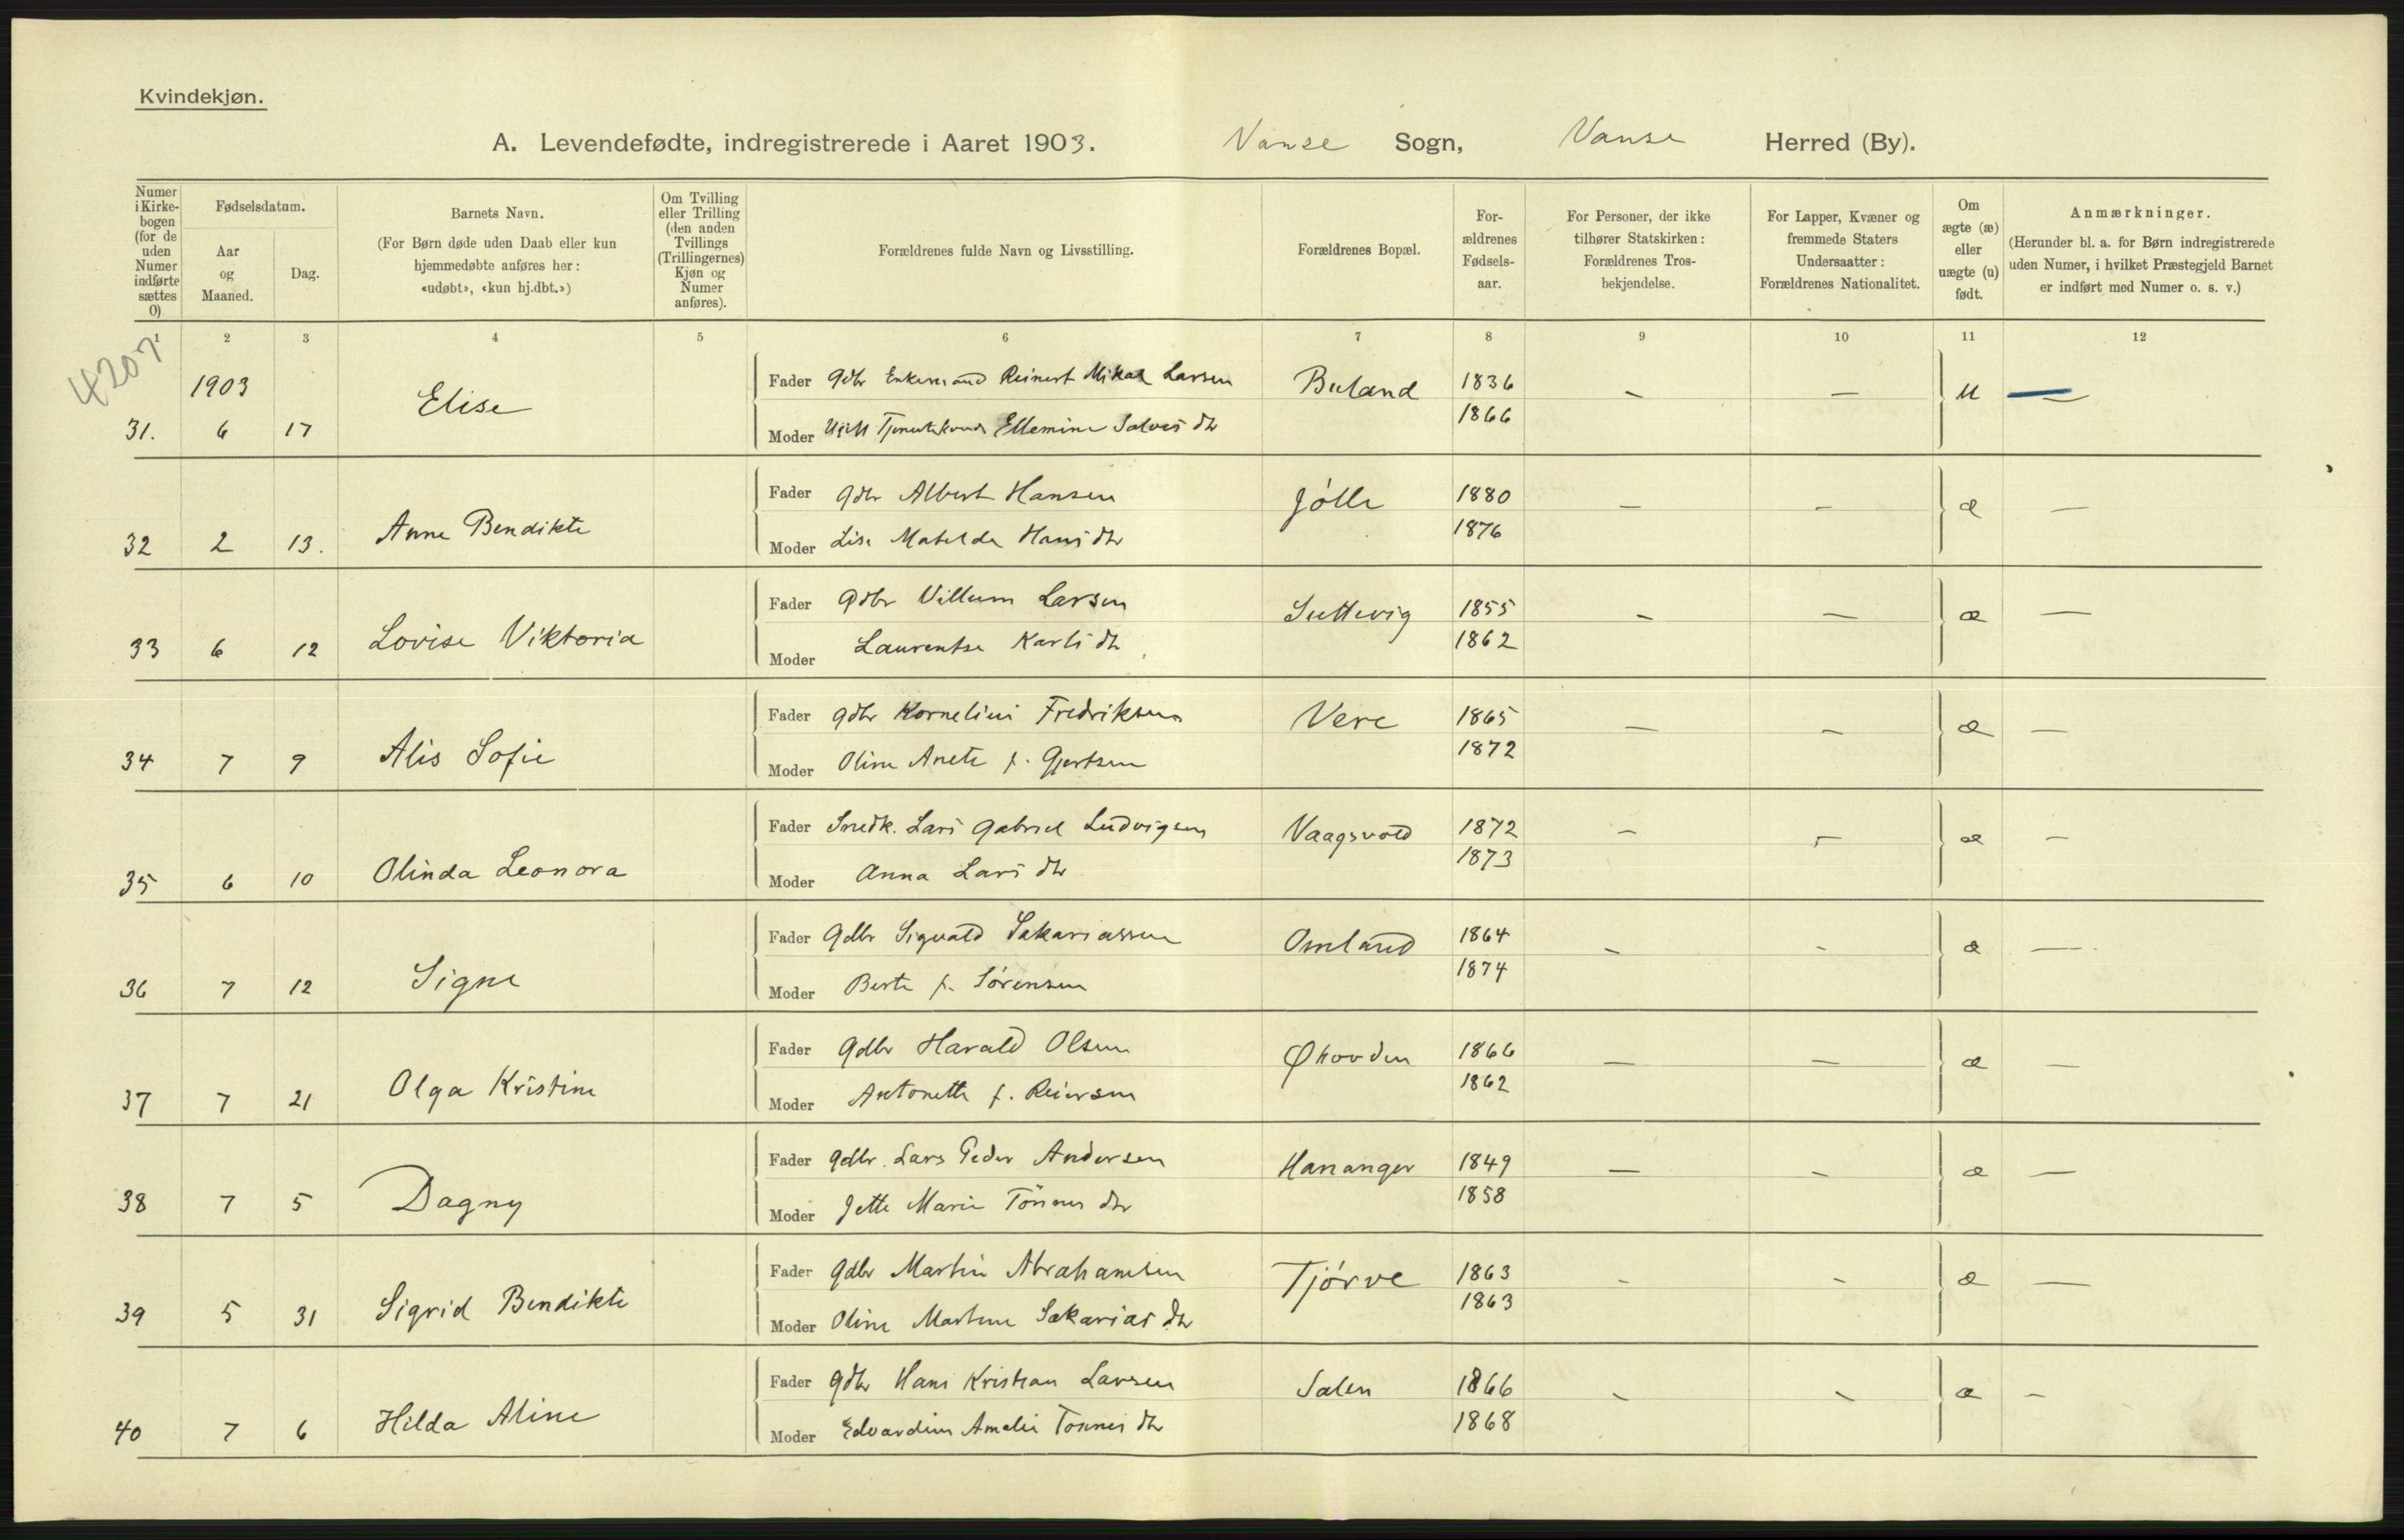 Kvindekjøn.
A. Levendefødte, indregistrerede i Aaret 1903. Vanse Sogn, Vanse Herred (By).
Numer i Kirke-bogen (for de uden Numer indførte sættes 0)
Fødselsdatum.
Aar og Maaned.
Dag.
Barnets Navn.
(For Børn døde uden Daab eller kun hjemmedøbte anføres her: «udøbt», «kun hj.dbt.»)
Om Tvilling eller Trilling (den anden Tvillings (Trillingernes) Kjøn og Numer anføres).
Forældrenes fulde Navn og Livsstilling.
Forældrenes Bopæl.
For-ældrenes Fødsels-aar.
For Personer, der ikke tilhører Statskirken: Forældrenes Tros-bekjendelse.
For Lapper, Kvæner og fremmede Staters Undersaatter: Forældrenes Nationalitet.
Om ægte (æ) eller uægte (u) født.
Anmærkninger.
(Herunder bl. a. for Børn indregistrerede uden Numer, i hvilket Præstegjeld Barnet er indført med Numer o. s. v.)
1 2 3 4 5 6 7 8 9 10 11 12
4207
1903
Fader Gdbr Enkemand Reinert Mikal Larsen Buland 1836 – – u —
31. 6 17 Elise
Moder Ugift Ellemine Salves dtr 1866
Fader Gdbr Albert Hansen Jølle 1880 – – æ —
32 2 13. Anne Bendikte
Moder Lise Matilda Hans dtr 1876
Fader Gdbr Villum Larsen 1855 – – æ —
33 6 12 Lovise Viktoria
Moder Laurentse Karls dtr 1862
Fader Gdbr Kornelius Fredriksen Vere 1865 – – æ —
34 7 9 Alis Sofie
Moder Oline Anete f. Gjertsen 1872
Fader Snedk. Lars Gabriel Ludvigsen Vaagsvold 1872 – – æ —
35 6 10 Olinda Leonora
Moder Anna Lars dtr 1873
Fader Gdbr Sigvald Sakariassen Omland 1864 – – æ —
36 7 12 Signe
Moder Berte f. Sørensen 1874
Fader Gdbr Harald Olsen Øhovden 1866 – – æ —
37 7 21 Olga Kristine
Moder Antonette f. Reiersen 1862
Fader Gdbr. Lars Peder Andersen Hananger 1849 – – æ —
38 7 5 Dagny
Moder Jette Marie Tønnes dtr 1858
Fader Gdbr Martin Abrahamsen Tjørve 1863 – – æ —
39 5 31 Sigrid Bendikte
Moder Oline Martine Sakarias dtr 1863
Fader Gdbr Hans Kristian Larsen Salen 1866 – – æ –
40 7 6 Hilda Aline
Moder Edvardine Amalie Tønnes dtr 1868